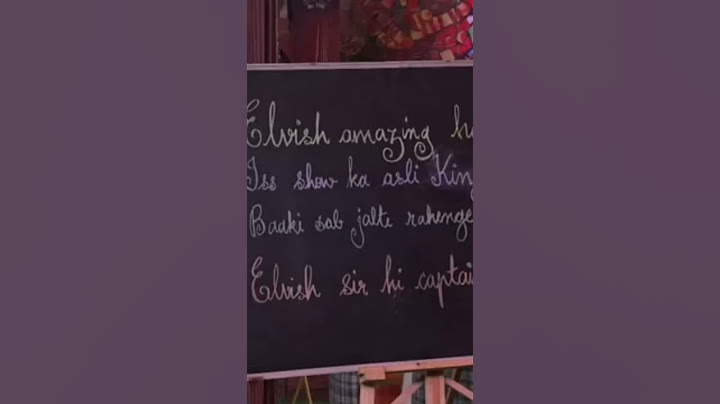 Elvish amazing h
Iss show ka asli King
Baaki sab jalte rahenge
Elvish sir hi captai